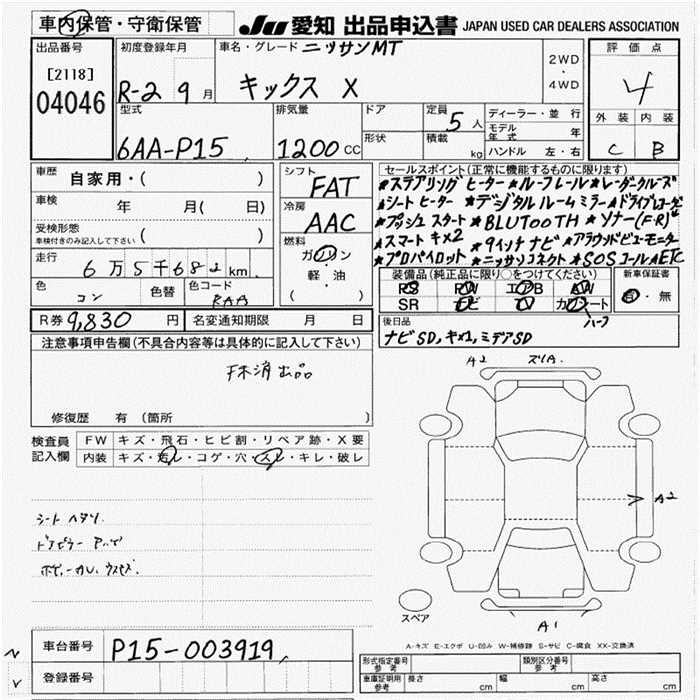 車内保管・守衛保管
JU 愛知 出品申込書 JAPAN USED CAR DEALERS ASSOCIATION
出品番号
[2118]
04046
初度登録年月
R-2 9月
車名・グレード ニッサンMT
キックス X
2WD
・
4WD
評価点
4
外装 内装
C B
型式
6AA-P15
排気量
1200 CC
ドア
形状
定員
5人
積載
kg
ディーラー・並行
モデル年式 年
ハンドル 左・右
車歴
自家用・( )
車検
年 月( 日)
受検形態
車検付きのみ記入して下さい ( )
走行
6万5千682km
色
コン
色替
色コード
RAA
シフト
FAT
冷房
AAC
燃料
ガソリン
・
軽・油
( )
セールスポイント(正常に機能するものに限ります)
★ステアリング ヒーター ★ルーフレール ★レーダクルーズ
★シート ヒーター ★デジタルルームミラー ★ドライブレコーダ
★プッシュ スタート ★BLUTOOTH ★ソナー(F・R)
★スマート キx2 ★9インチ ナビ ★アラウンドビューモニター
★プロパイロット ★ニッサンコネクト ★SOSコール ★ETC
装備品(純正品に限り○をつけてください)
PS PW エアB AW
SR ナビ TV カワシート
ハーフ
新車保証書
有・無
R券 9,830 円
名変通知期限 月 日
後日品
ナビSD, キx2, ミデアSD
注意事項申告欄(不具合内容等は具体的に記入して下さい)
下木済出品
修復歴 有(箇所 )
検査員
記入欄
FW キズ・飛石・ヒビ割・リペア跡・X要
内装 キズ・汚レ・コゲ・穴・スレ・キレ・破レ
シート ヘタリ
A2
A2
A1
スペア
A-キズ E-エクボ U-凹み W-補修跡 S-サビ C-腐食 XX-交換済
車台番号 P15-003919
登録番号
形式指定番号
参考
類別区分番号
参考
車庫証明用
参考
長さ cm 幅 cm 高さ cm